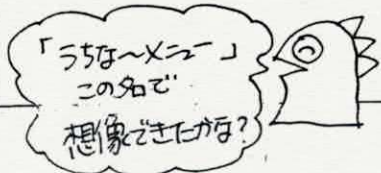 「うちな〜メニュー」
この名で
想像できたかな?